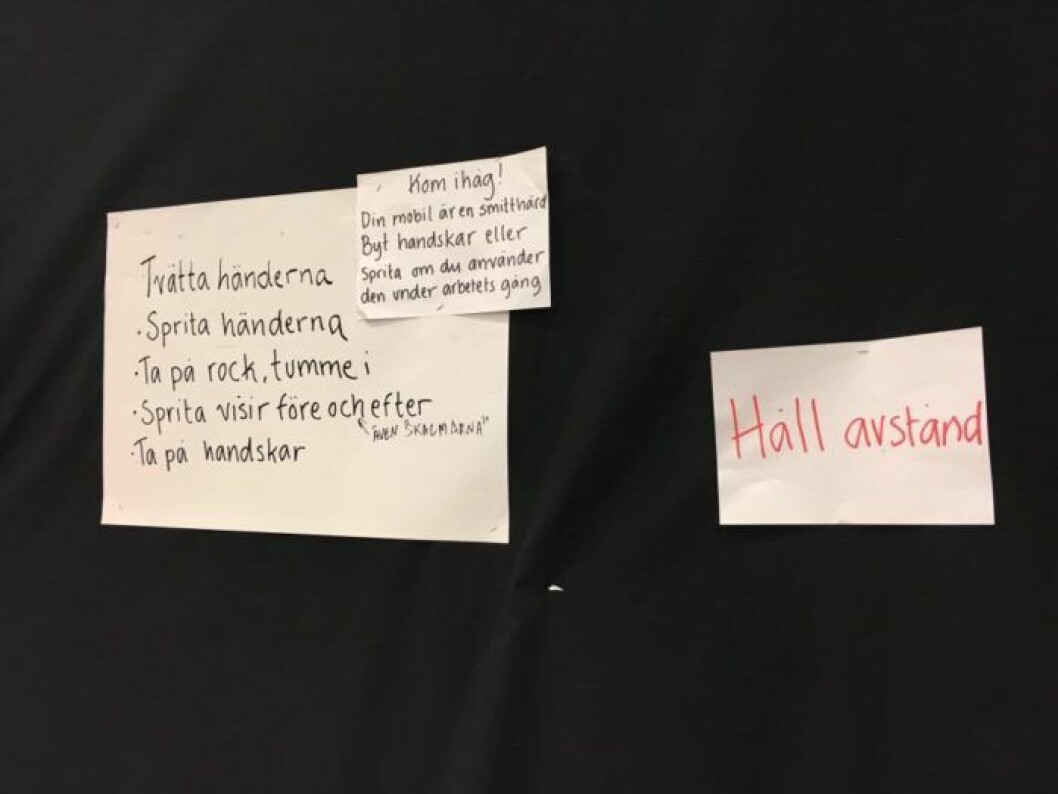 Kom ihåg!
Din mobil är en smitthärd
Byt handskar eller
Sprita om du använder
den under arbetets gång
Tvätta händerna
· Sprita händerna
· Ta på rock, tumme i
· Sprita visir före och efter
ÄVEN "SKALMARNA"
· Ta på handskar
Håll avstånd